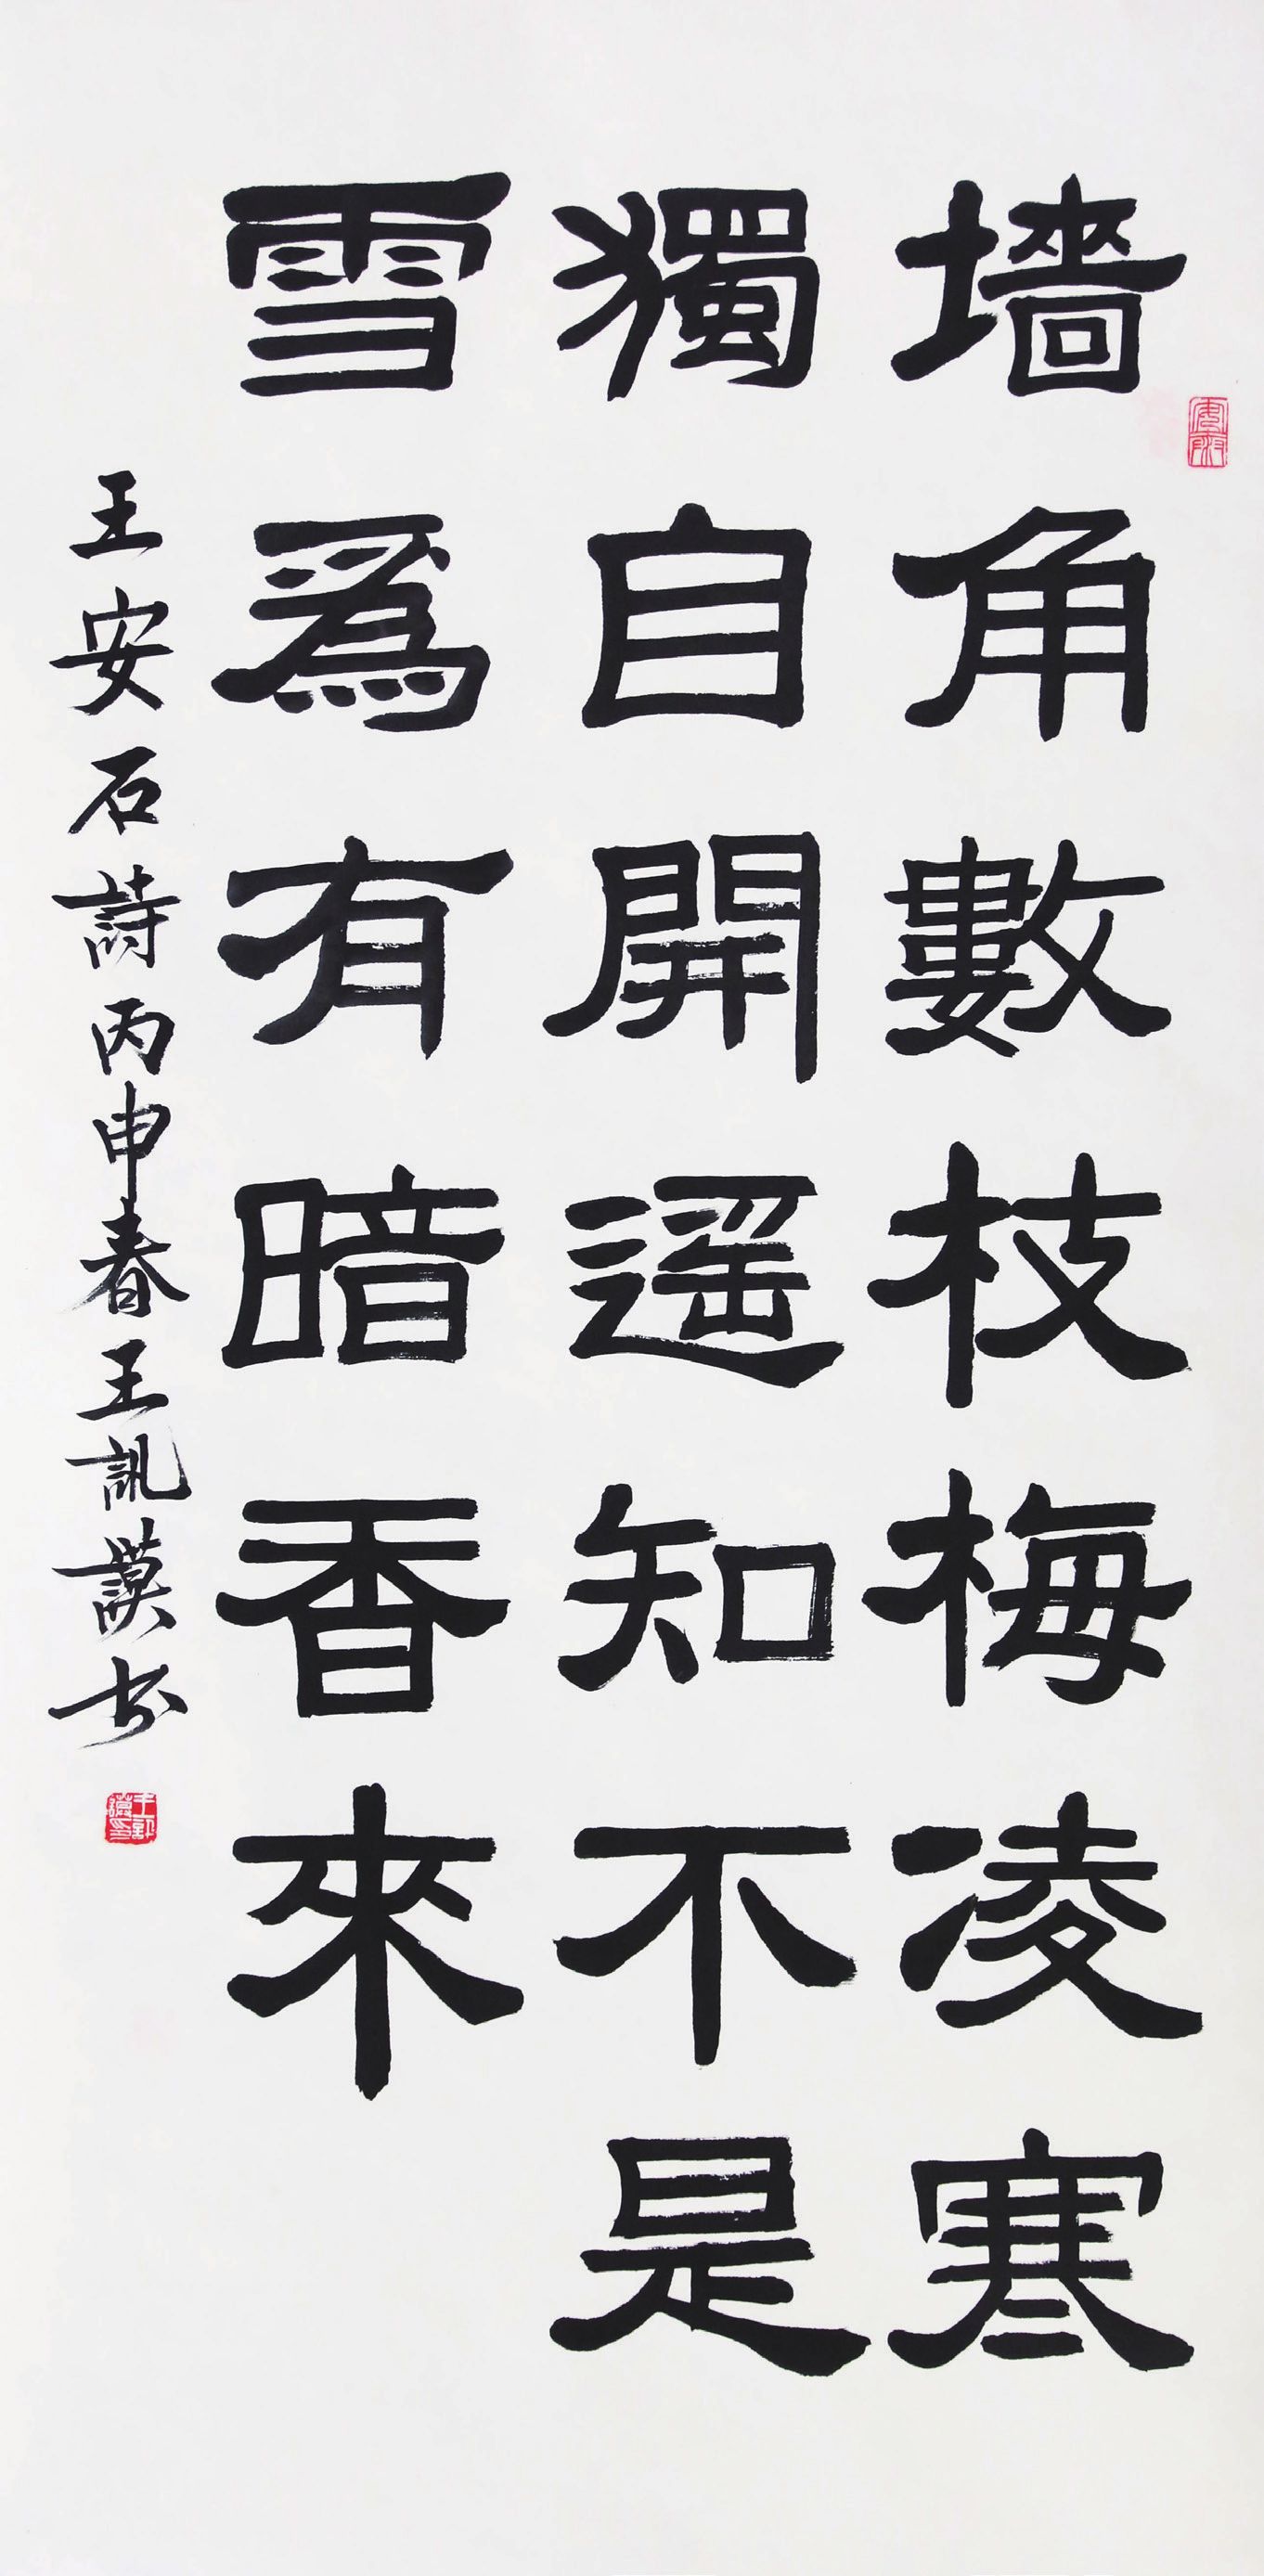 墻角數枝梅凌寒
獨自開遥知不是
雪爲有暗香來
王安石詩丙申春王訊謨书